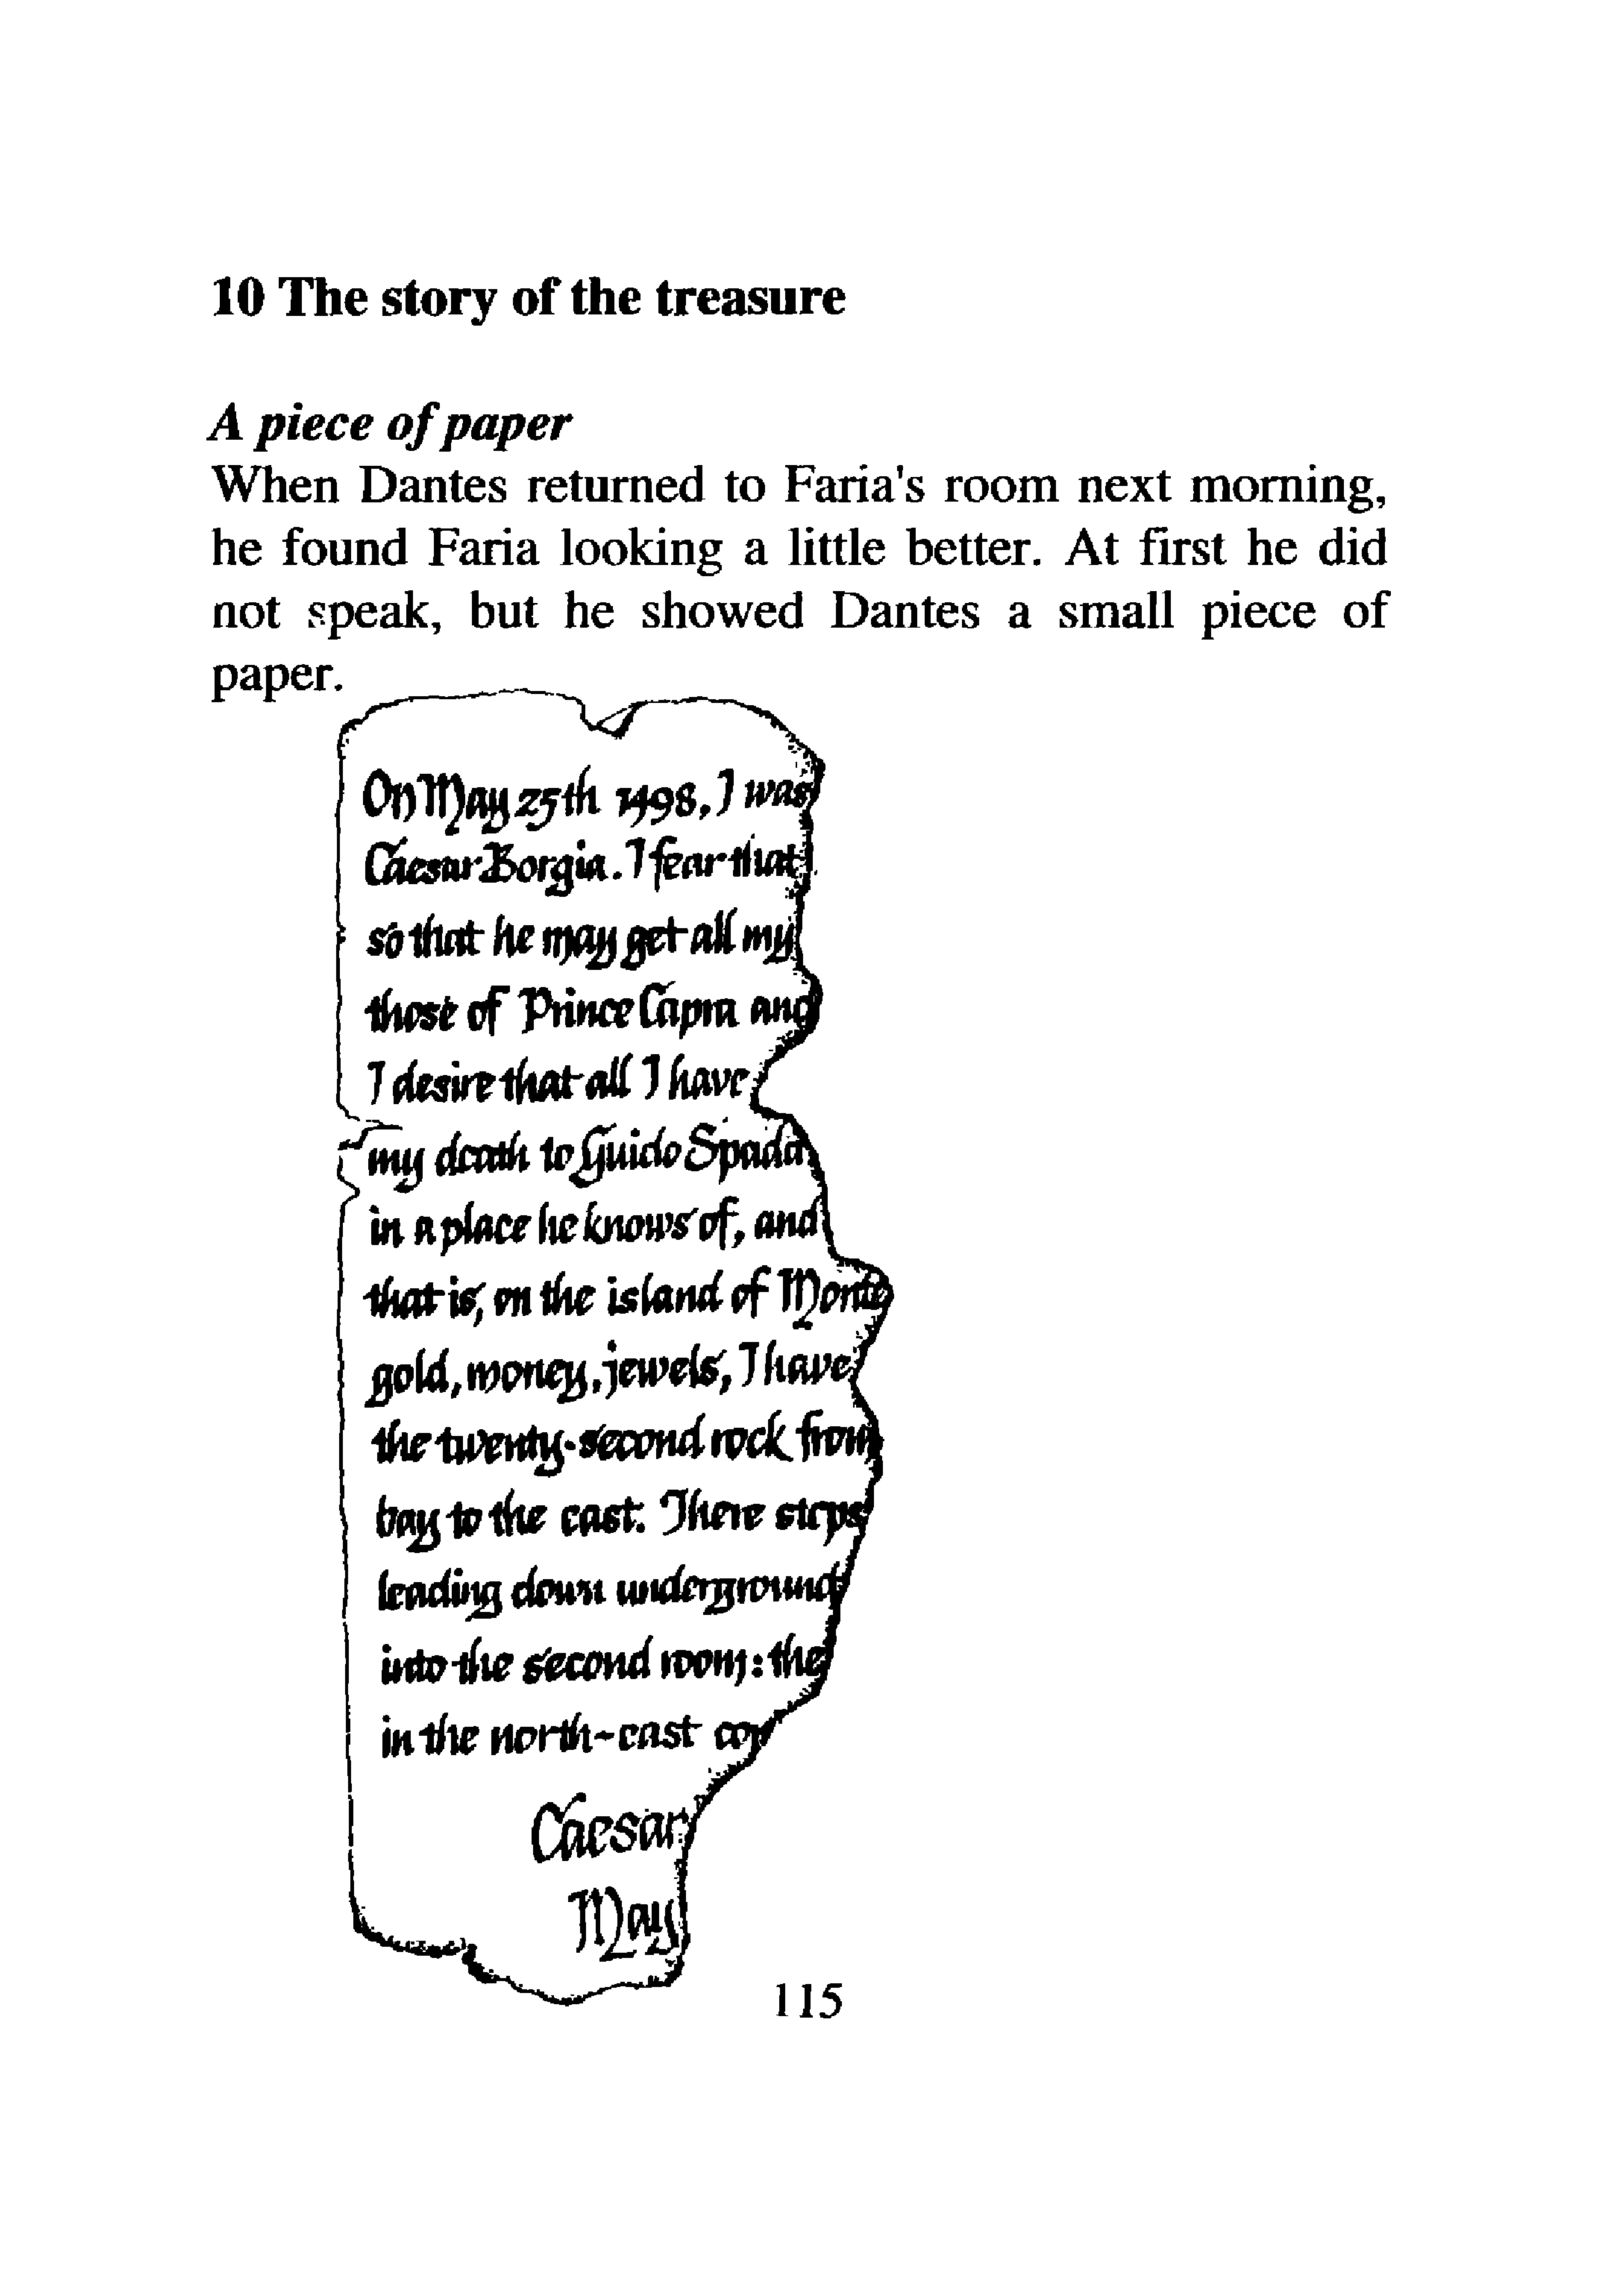 10 The story of the treasure
A piece of paper
When Dantes returned to Faria's room next morning,
he found Faria looking a little better. At first he did
not speak, but he showed Dantes a small piece of
paper.
On May 25th 1498, I was
Caesar Borgia. I fear that
so that he may get all my
those of Prince Capra and
I desire that all I have
my death to Guido Spada
in a place he knows of, and
that is, on the island of Monte
gold, money, jewels, I have
the twenty-second rock from
bay to the east. There steps
leading down underground
into the second room: the
in the north-east cor
Caesar
May
115